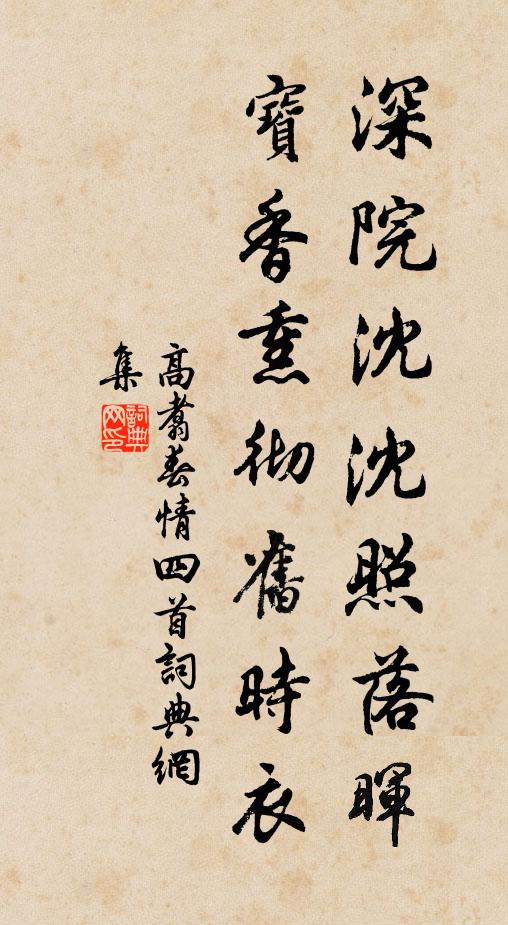 深院沈沈照落暉
寶香熏彻舊時衣
高翥春情四首詞典網
集
詞典网印